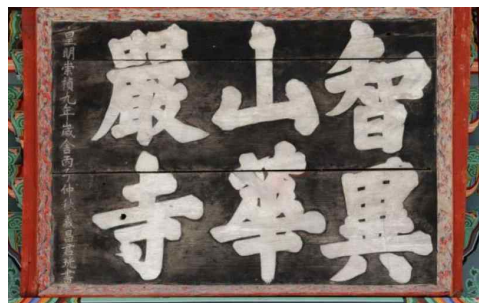 智異
山華
嚴寺
皇明崇禎九年歲舍丙子仲秋義昌君珖書